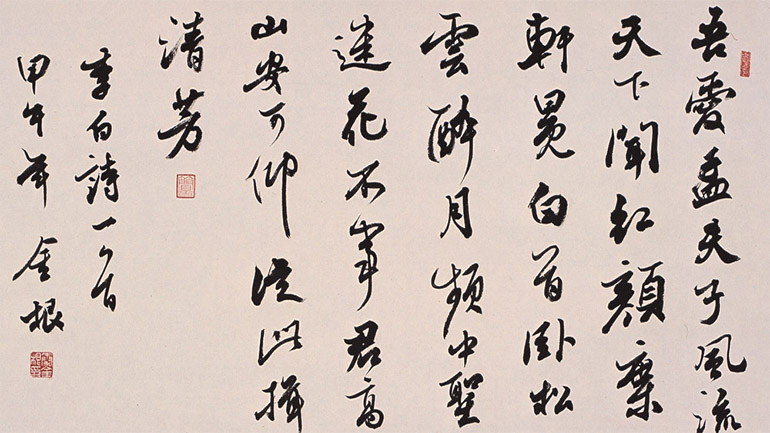 吾愛孟夫子風流
天下聞紅顏棄
軒冕白首卧松
雲醉月頻中聖
迷花不事君高
山安可仰從此揖
清芳
李白詩一首
甲午年 金根